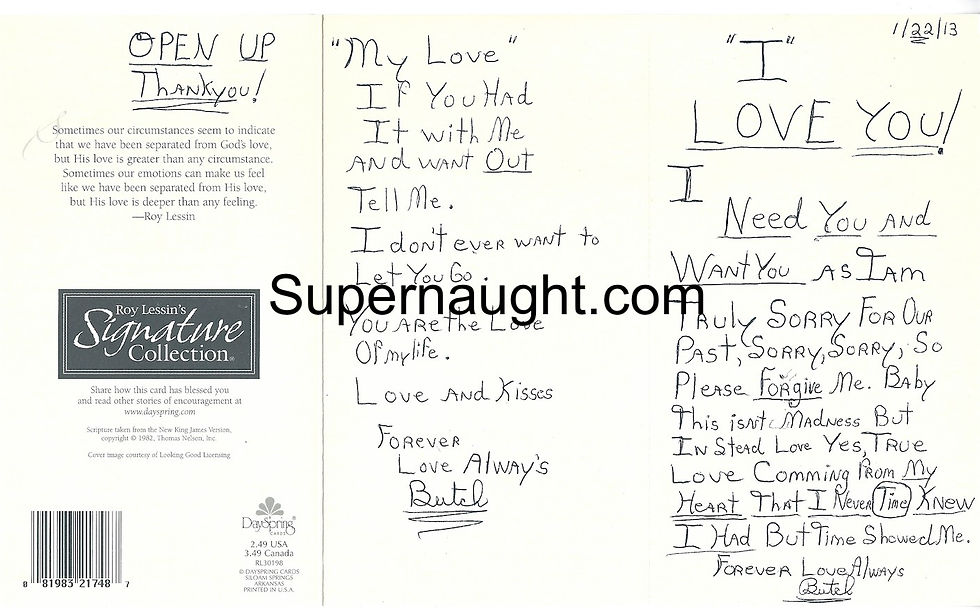 OPEN UP
Thankyou!
Sometimes our circumstances seem to indicate
that we have been separated from God's love,
but His love is greater than any circumstance.
Sometimes our emotions can make us feel
like we have been separated from His love,
but His love is deeper than any feeling.
—Roy Lessin
Roy Lessin's
Signature
Collection®
Share how this card has blessed you
and read other stories of encouragement at
www.dayspring.com
Scripture taken from the New King James Version,
copyright © 1982, Thomas Nelson, Inc.
Cover image courtesy of Looking Good Licensing
0 81983 21748 7
DaySpring
CARDS
2.49 USA
3.49 Canada
RL30198
© DAYSPRING CARDS
SILOAM SPRINGS
ARKANSAS
PRINTED IN U.S.A.
"My Love"
If You Had
It with Me
And want Out
Tell Me.
I don't ever want to
Let You Go
Supernaught.com
You Are the Love
Of my life.
Love And Kisses
Forever
Love Alway's
Butch
1/22/13
"I"
LOVE YOU!
I
Need You And
Want You As I am
Truly Sorry For Our
Past, Sorry, Sorry, So
Please Forgive Me. Baby
This isnt Madness But
In Stead Love Yes, True
Love Comming From My
Heart That I Never Time Knew
I Had But Time Showed Me.
Forever Love Always
Butch